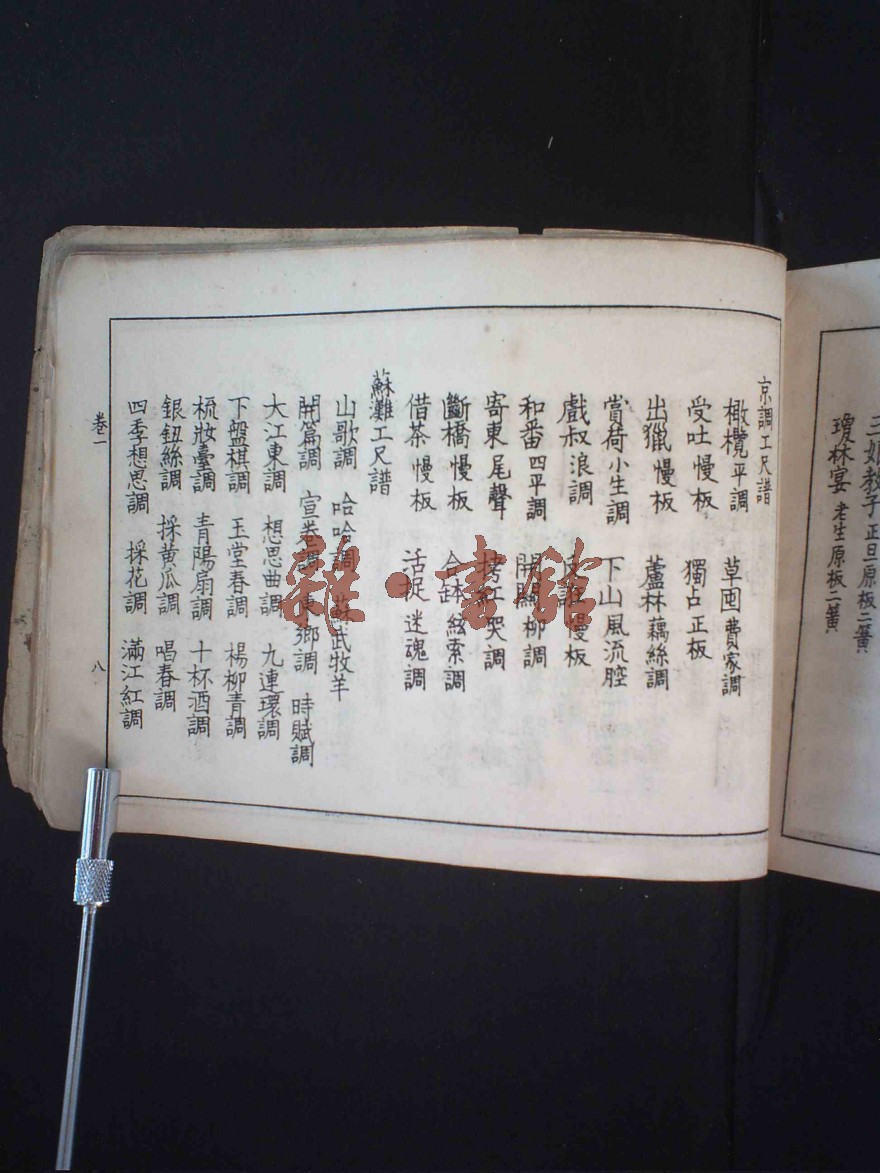 三娘教子 正旦原板二簧
瓊林宴 老生原板二簧
京調工尺譜
橄欖平調 草囤費家調
受吐慢板 獨占正板
出獵慢板 蘆林藕絲調
賞荷小生調 下山風流腔
戲叔浪調 慢板
和番四平調 開繡柳調
寄東尾聲 拷紅哭調
斷橋慢板 合缽絃索調
借茶慢板 活捉迷魂調
蘇灘工尺譜
山歌調 哈哈調 蘇武牧羊
開篇調 宣卷調 東鄉調 時賦調
大江東調 想思曲調 九連環調
下盤棋調 玉堂春調 楊柳青調
梳妝臺調 青陽扇調 十杯酒調
銀鈕絲調 採黃瓜調 唱春調
四季想思調 採花調 滿江紅調
卷一
八
雜·書館